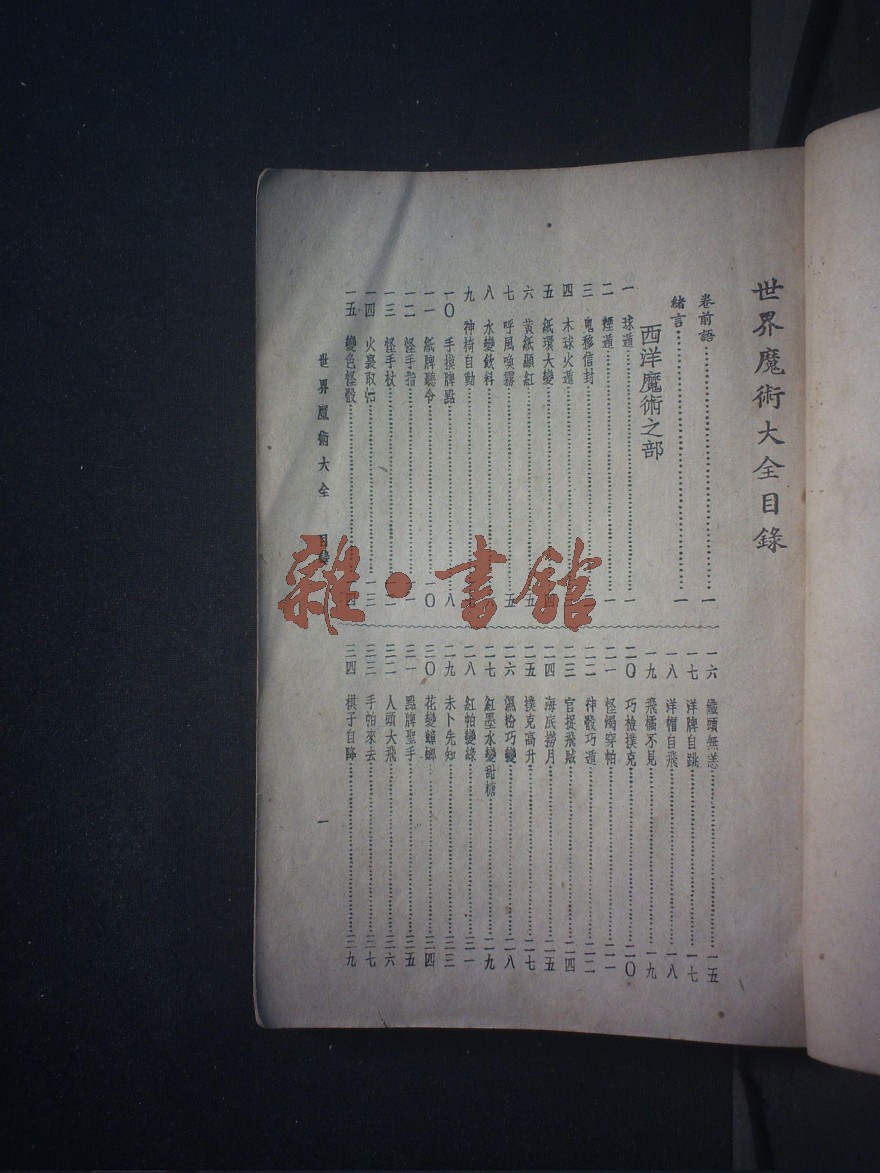 世界魔術大全目錄
卷前語……一
緒言……一
西洋魔術之部
一 球遁……一
二 煙遁……一
三 鬼移信封……
四 木球火遁……
五 紙環大變……四
六 黃紙顯紅……五
七 呼風喚霧……五
八 水變飲料……
九 神椅自動……
一〇 手摸牌點……八
一一 紙牌聽令……一〇
一二 怪手指……一一
一三 怪手杖……
一四 火裏取……一三
一五 變色怪骰……一四
一六 頭無恙……一五
一七 洋牌自跳……一七
一八 洋帽自飛……一八
一九 飛橘不見……一九
二〇 巧檢撲克……二〇
二一 怪燭穿帕……二一
二二 神骰巧遁……二二
二三 官捉飛賊……二四
二四 海底撈月……二五
二五 撲克高升……二七
二六 濕粉巧變……二八
二七 紅墨水變甜糖……二九
二八 紅帕變綠……三一
二九 未卜先知……三三
三〇 花變蟑螂……三四
三一 點牌聖手……三五
三二 人頭大飛……三六
三三 手帕來去……三七
三四 棋子自降……三九
世界魔術大全 目錄
一
雜·書館